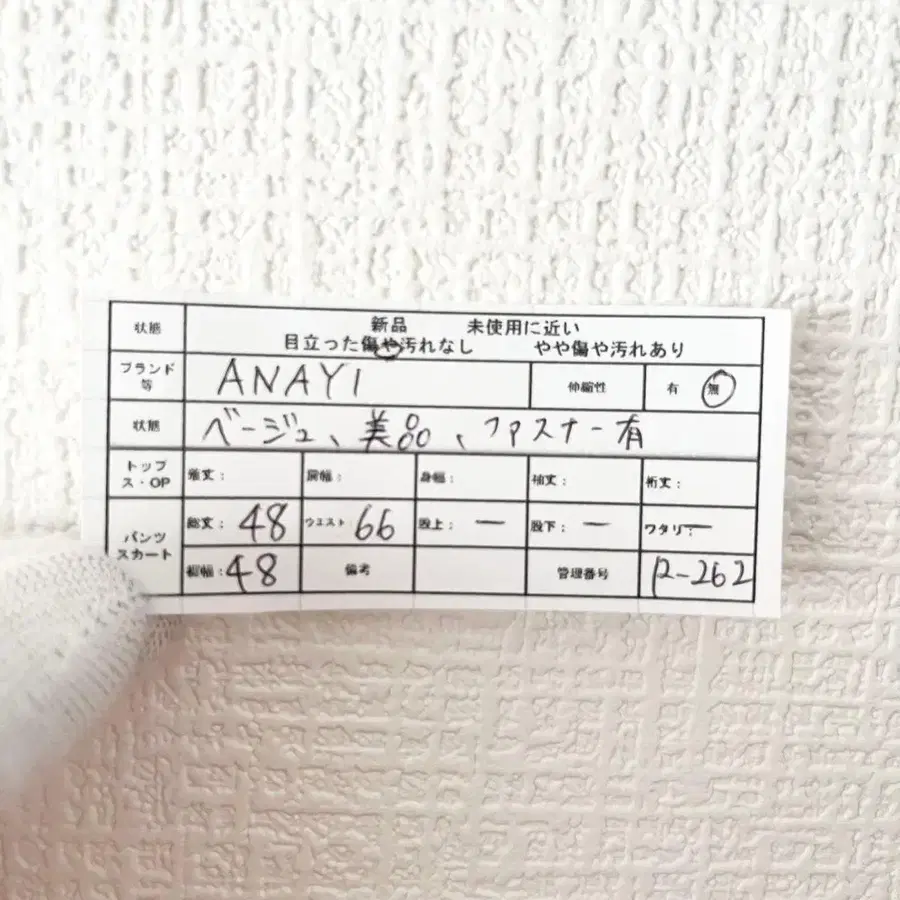 状態 新品 未使用に近い
目立った傷や汚れなし やや傷や汚れあり
ブランド等 ANAYI 伸縮性 有 無
状態 ベージュ、美品、ファスナー有
トップス・OP 着丈: 肩幅: 身幅: 袖丈: 裄丈:
パンツスカート 総丈: 48 ウエスト: 66 股上: ー 股下: ー ワタリ: ー
裾幅: 48 備考 管理番号 P-262